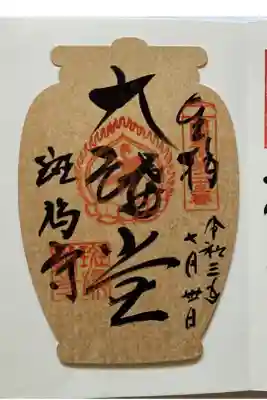 奉拝
令和三年
七月卅日
大講堂
斑鳩寺